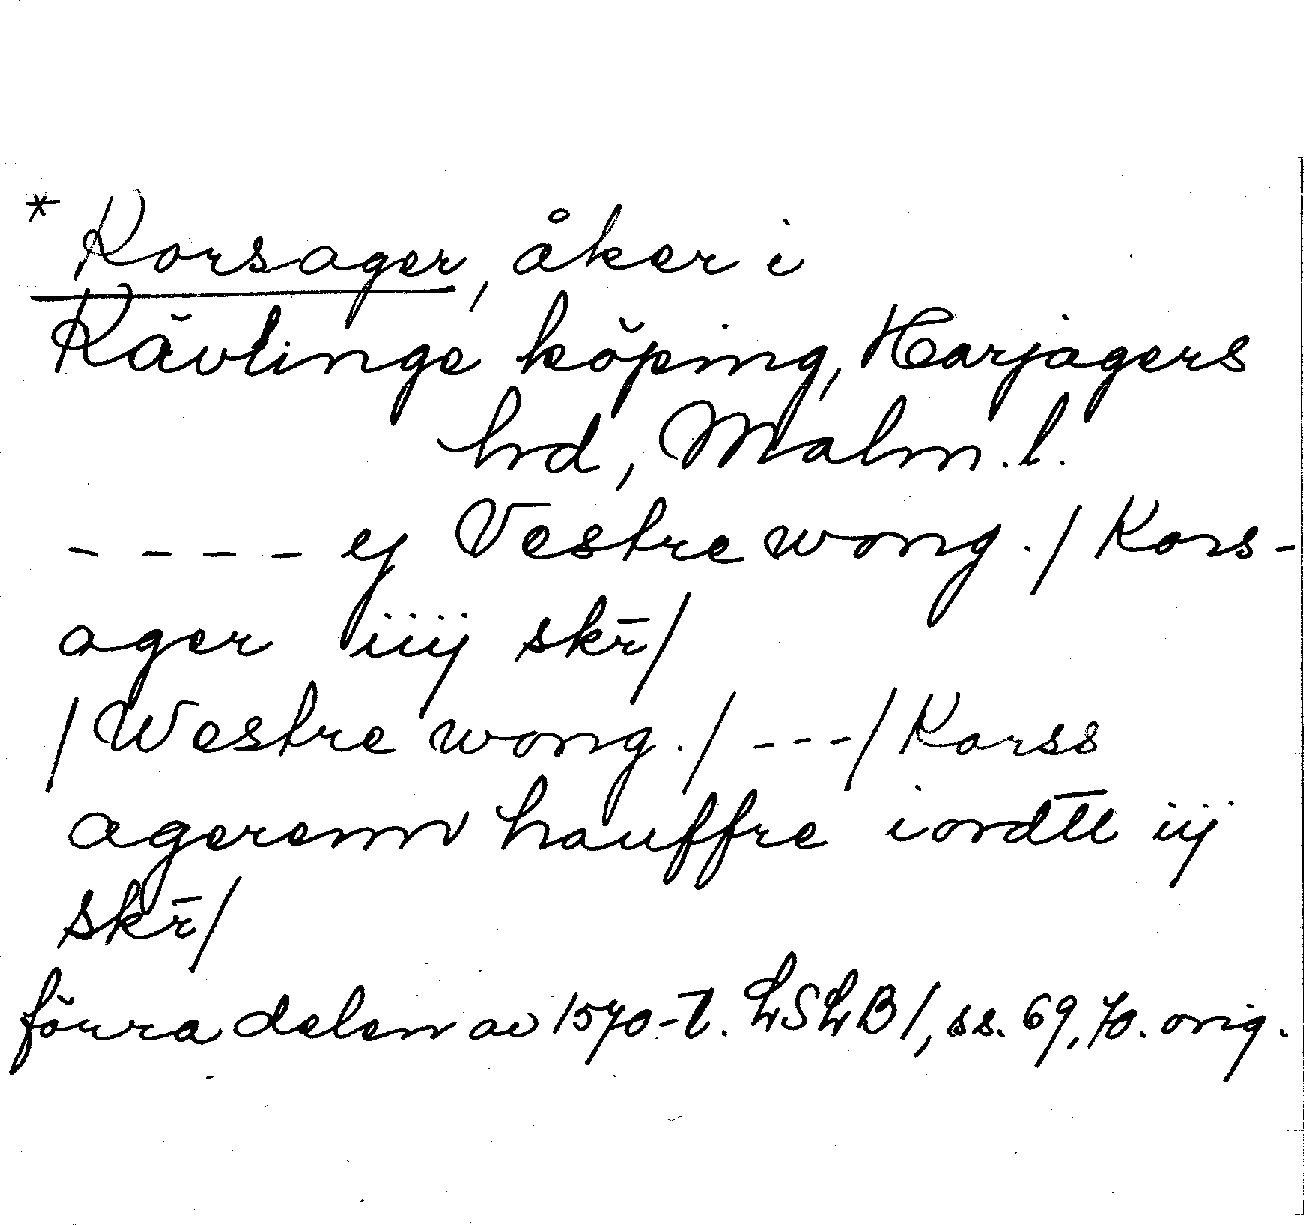 * Korsager, åker i
Kävlinge köping, Harjagers
hd, Malm. l.
---- ej Vestre wong. / Kors-
ager iiij skr̄/
/Westre wong./ ---/Korss
agerenn hauffre iordtt iij
skr̄/
förra delen av 1570-t. LSLB 1, ss. 69, 70. orig.